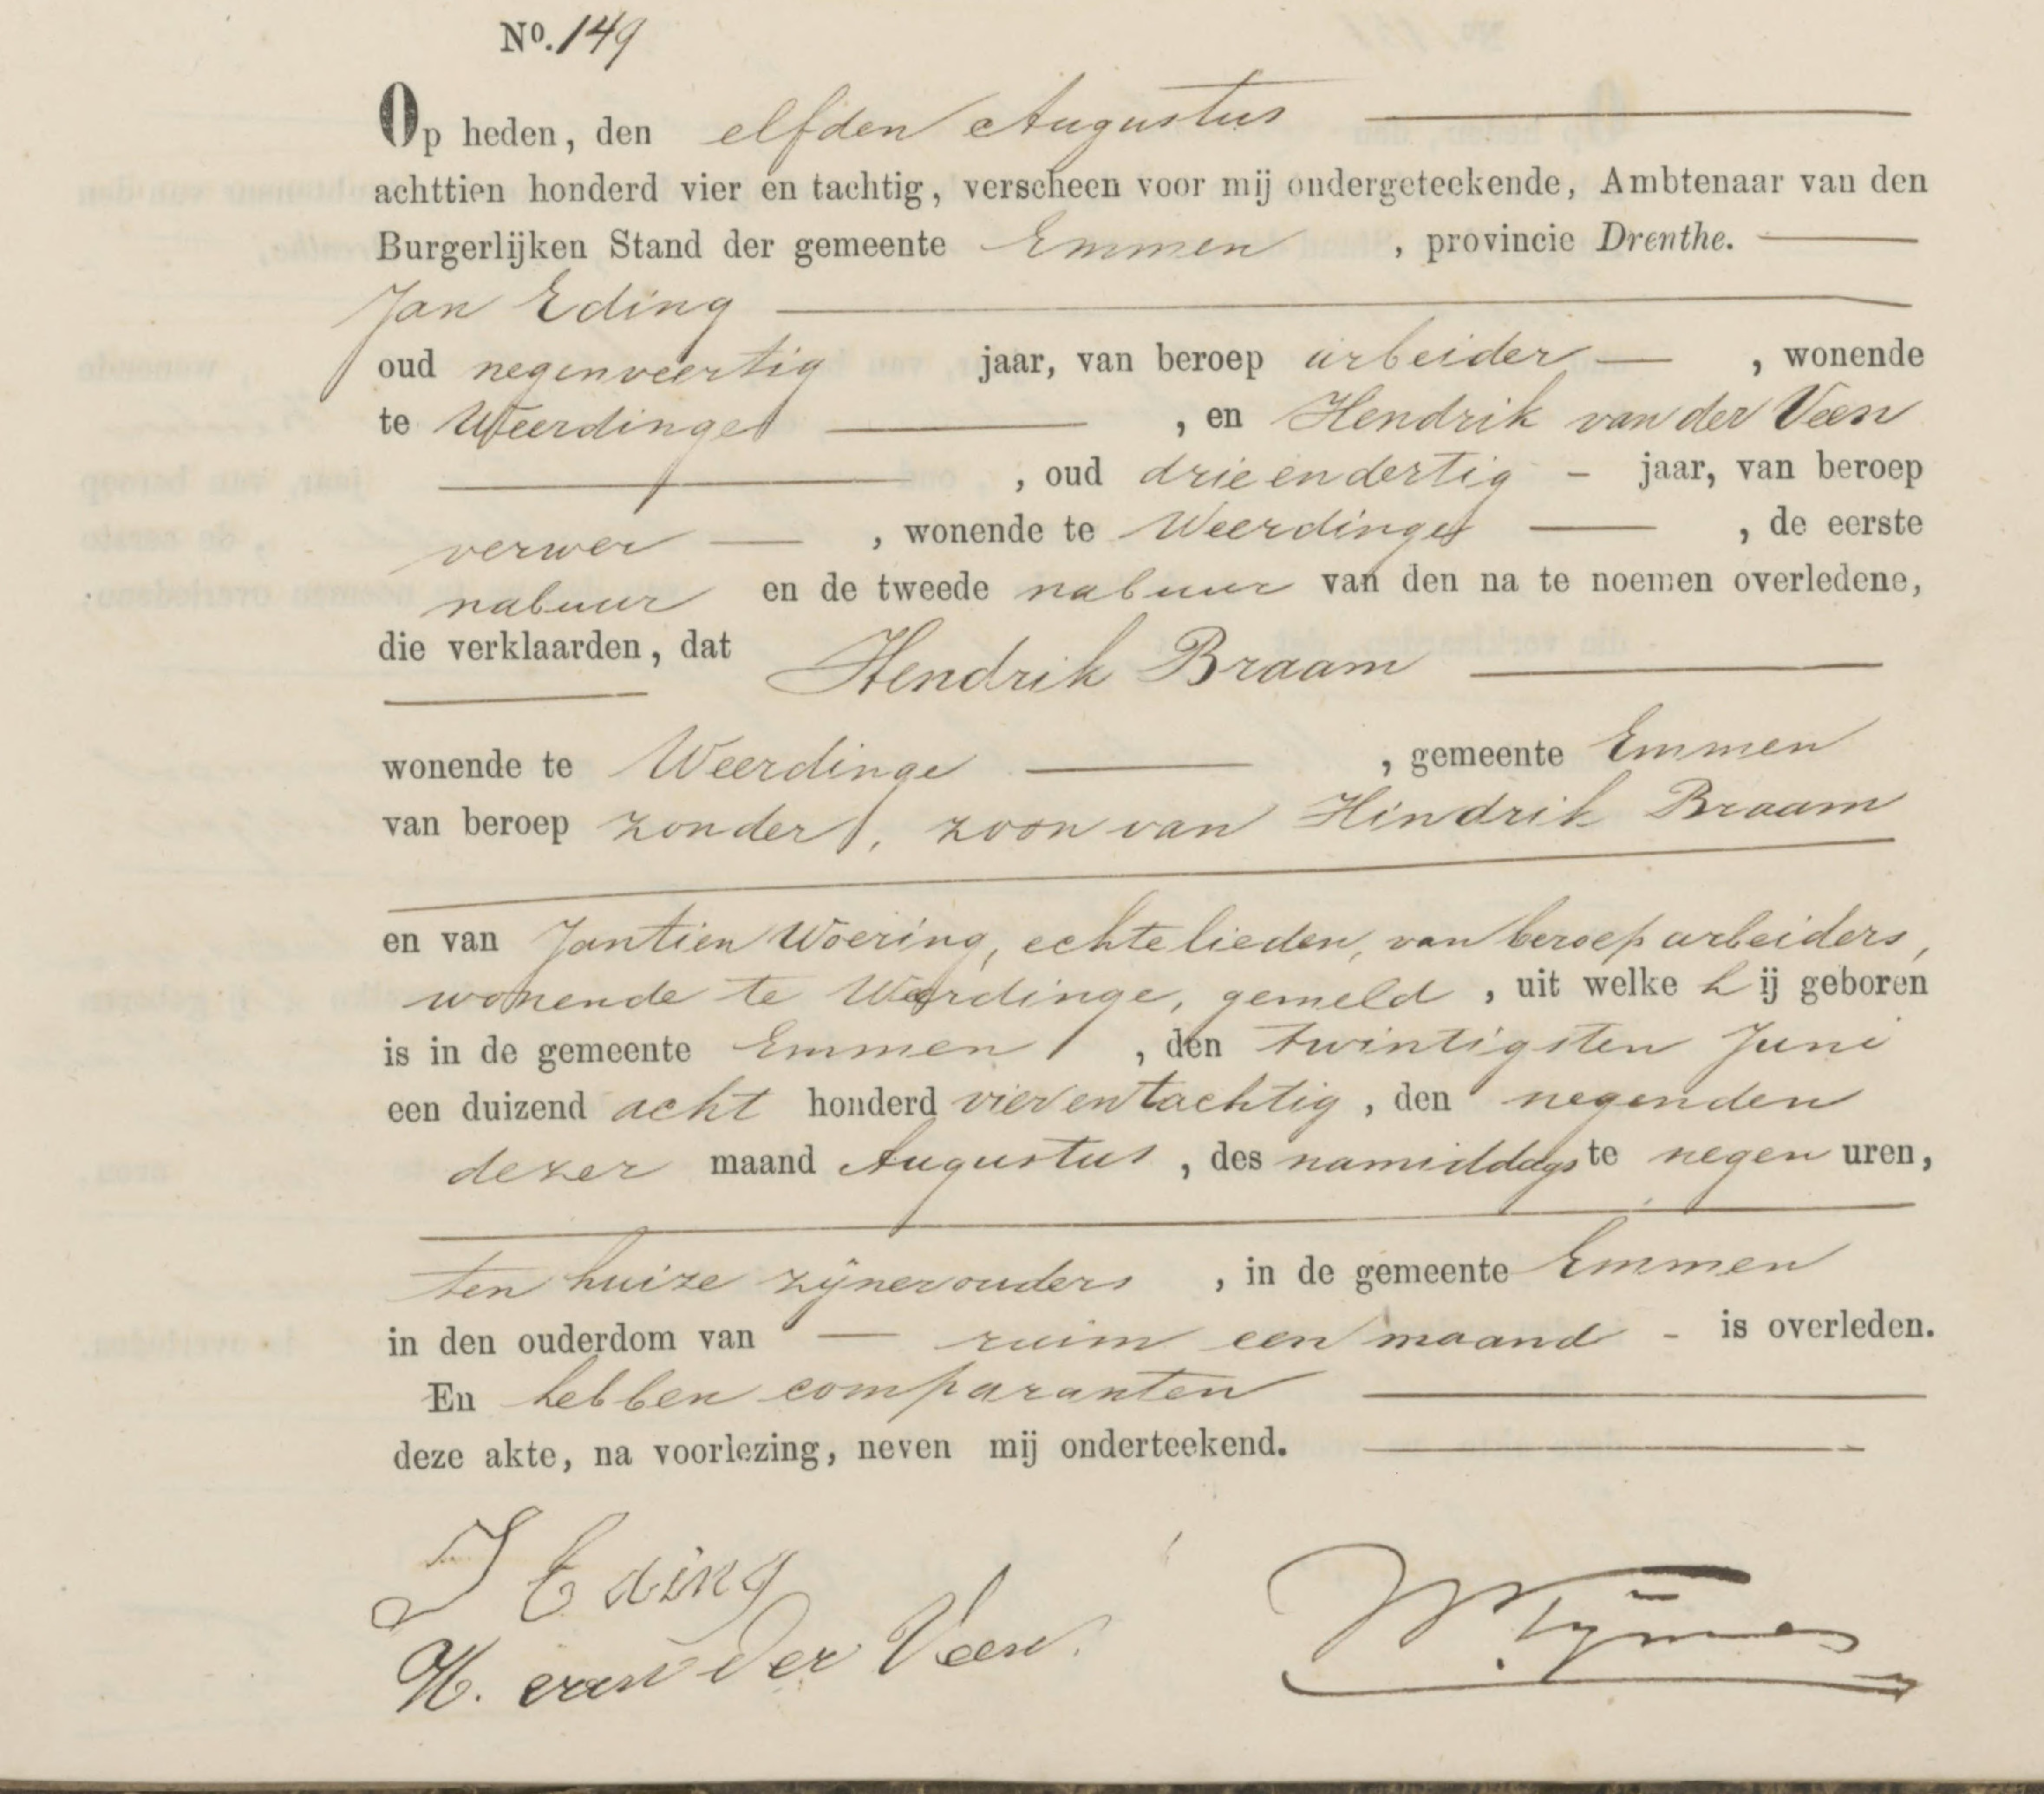 No. 149
Op heden, den elfden Augustus
achttien honderd vier en tachtig, verscheen voor mij ondergeteekende, Ambtenaar van den
Burgerlijken Stand der gemeente Emmen, provincie Drenthe.
Jan Eding
oud negenveertig jaar, van beroep arbeider, wonende
te Weerdinge, en Hendrik van der Veen
, oud drieendertig - jaar, van beroep
verwer, wonende te Weerdinge, de eerste
nabuur en de tweede nabuur van den na te noemen overledene,
die verklaarden, dat Hendrik Braam
wonende te Weerdinge, gemeente Emmen
van beroep zonder, zoon van Hindrik Braam
en van Jantien Woering, echtelieden, van beroep arbeiders,
wonende te Weerdinge, gemeld, uit welke hij geboren
is in de gemeente Emmen, den twintigsten Juni
een duizend acht honderd vierentachtig, den negenden
dezer maand Augustus, des namiddags te negen uren,
ten huize zijner ouders, in de gemeente Emmen
in den ouderdom van — ruim een maand - is overleden.
En hebben comparanten
deze akte, na voorlezing, neven mij onderteekend.
J Eding
H. van der Veen